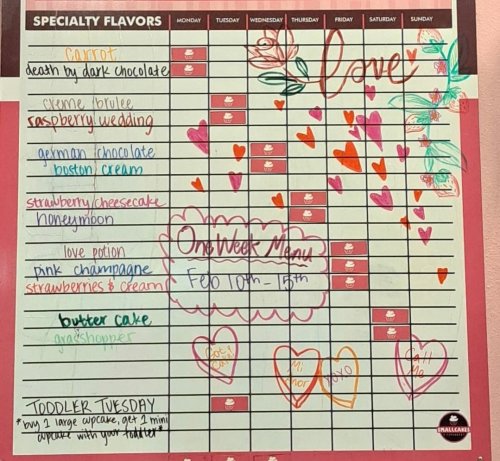 SPECIALTY FLAVORS MONDAY TUESDAY WEDNESDAY THURSDAY FRIDAY SATURDAY SUNDAY
love
carrot
death by dark chocolate
creme brulee
raspberry wedding
german chocolate
boston cream
strawberry cheesecake
honeymoon
One Week Menu
love potion
pink champagne
Feb 10th - 15th
strawberries & cream
butter cake
grasshopper
Mi Amor
XOXO
Call Me
TODDLER TUESDAY
*buy 1 large cupcake, get 1 mini
cupcake with your toddler*
SMALLCAKES